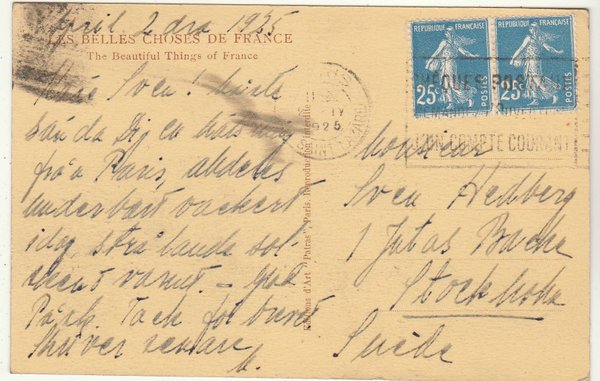 April 2 dra 1925
LES BELLES CHOSES DE FRANCE
The Beautiful Things of France
Sven! måste
sända Dig en hälsning
från Paris, alldeles
underbart vackert
idag, strålande sol-
sken & varmt. – Glad
Påsk. Tack för brevet
skriver senare
Editions d'Art "Patras", Paris. Reproduction interdite
REPUBLIQUE FRANÇAISE
25c
REPUBLIQUE FRANÇAISE
25c
IV
1925
CHEQUES POSTAUX
D'UN COMPTE COURANT
Monsieur
Sven Hedberg
1 Jutas Backe
Stockholm
Suède